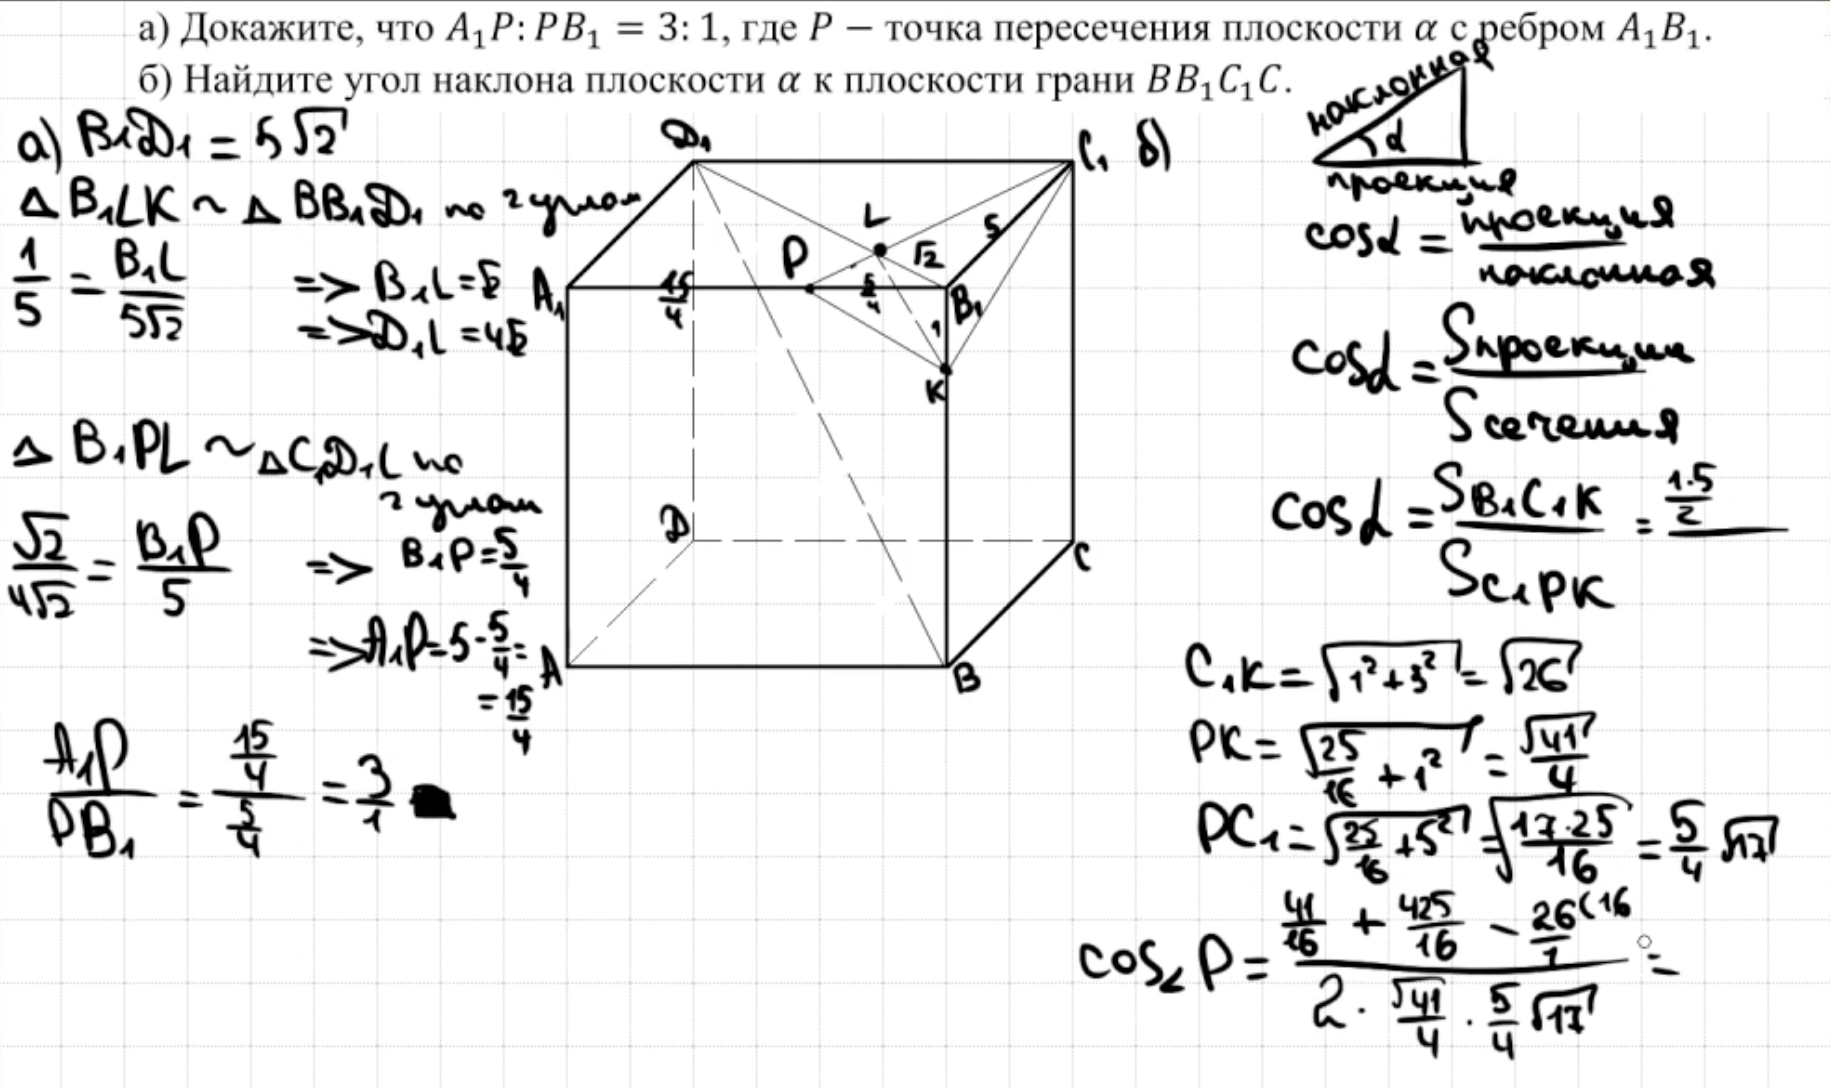 а) Докажите, что A₁P: PB₁ = 3: 1, где P − точка пересечения плоскости α с ребром A₁B₁.
б) Найдите угол наклона плоскости α к плоскости грани BB₁C₁C.
а) B₁D₁ = 5√2
△ B₁LK ~ △ BB₁D₁ по 2 углам
1/5 = B₁L/5√2 => B₁L = √2
=> D₁L = 4√2
△ B₁PL ~ △C₁D₁L по
2 углам
√2/4√2 = B₁P/5 => B₁P = 5/4
=> A₁P = 5 - 5/4 =
= 15/4
A₁P/PB₁ = (15/4)/(5/4) = 3/1
D₁
C₁
L
P
√2
5
A₁
15/4
5/4
B₁
1
K
D
C
A
B
б)
наклонная
α
проекция
cosα = проекция/наклонная
cosα = Sпроекции/Sсечения
cosα = S B₁C₁K/S C₁PK = (1·5/2)/
C₁K = √(1² + 5²) = √26
PK = √(25/16 + 1²) = √41/4
PC₁ = √(25/16 + 5²) = √(17·25/16) = 5/4 √17
cos∠P = (41/16 + 425/16 - 26/1 (16)/(2 · √41/4 · 5/4 √17) =